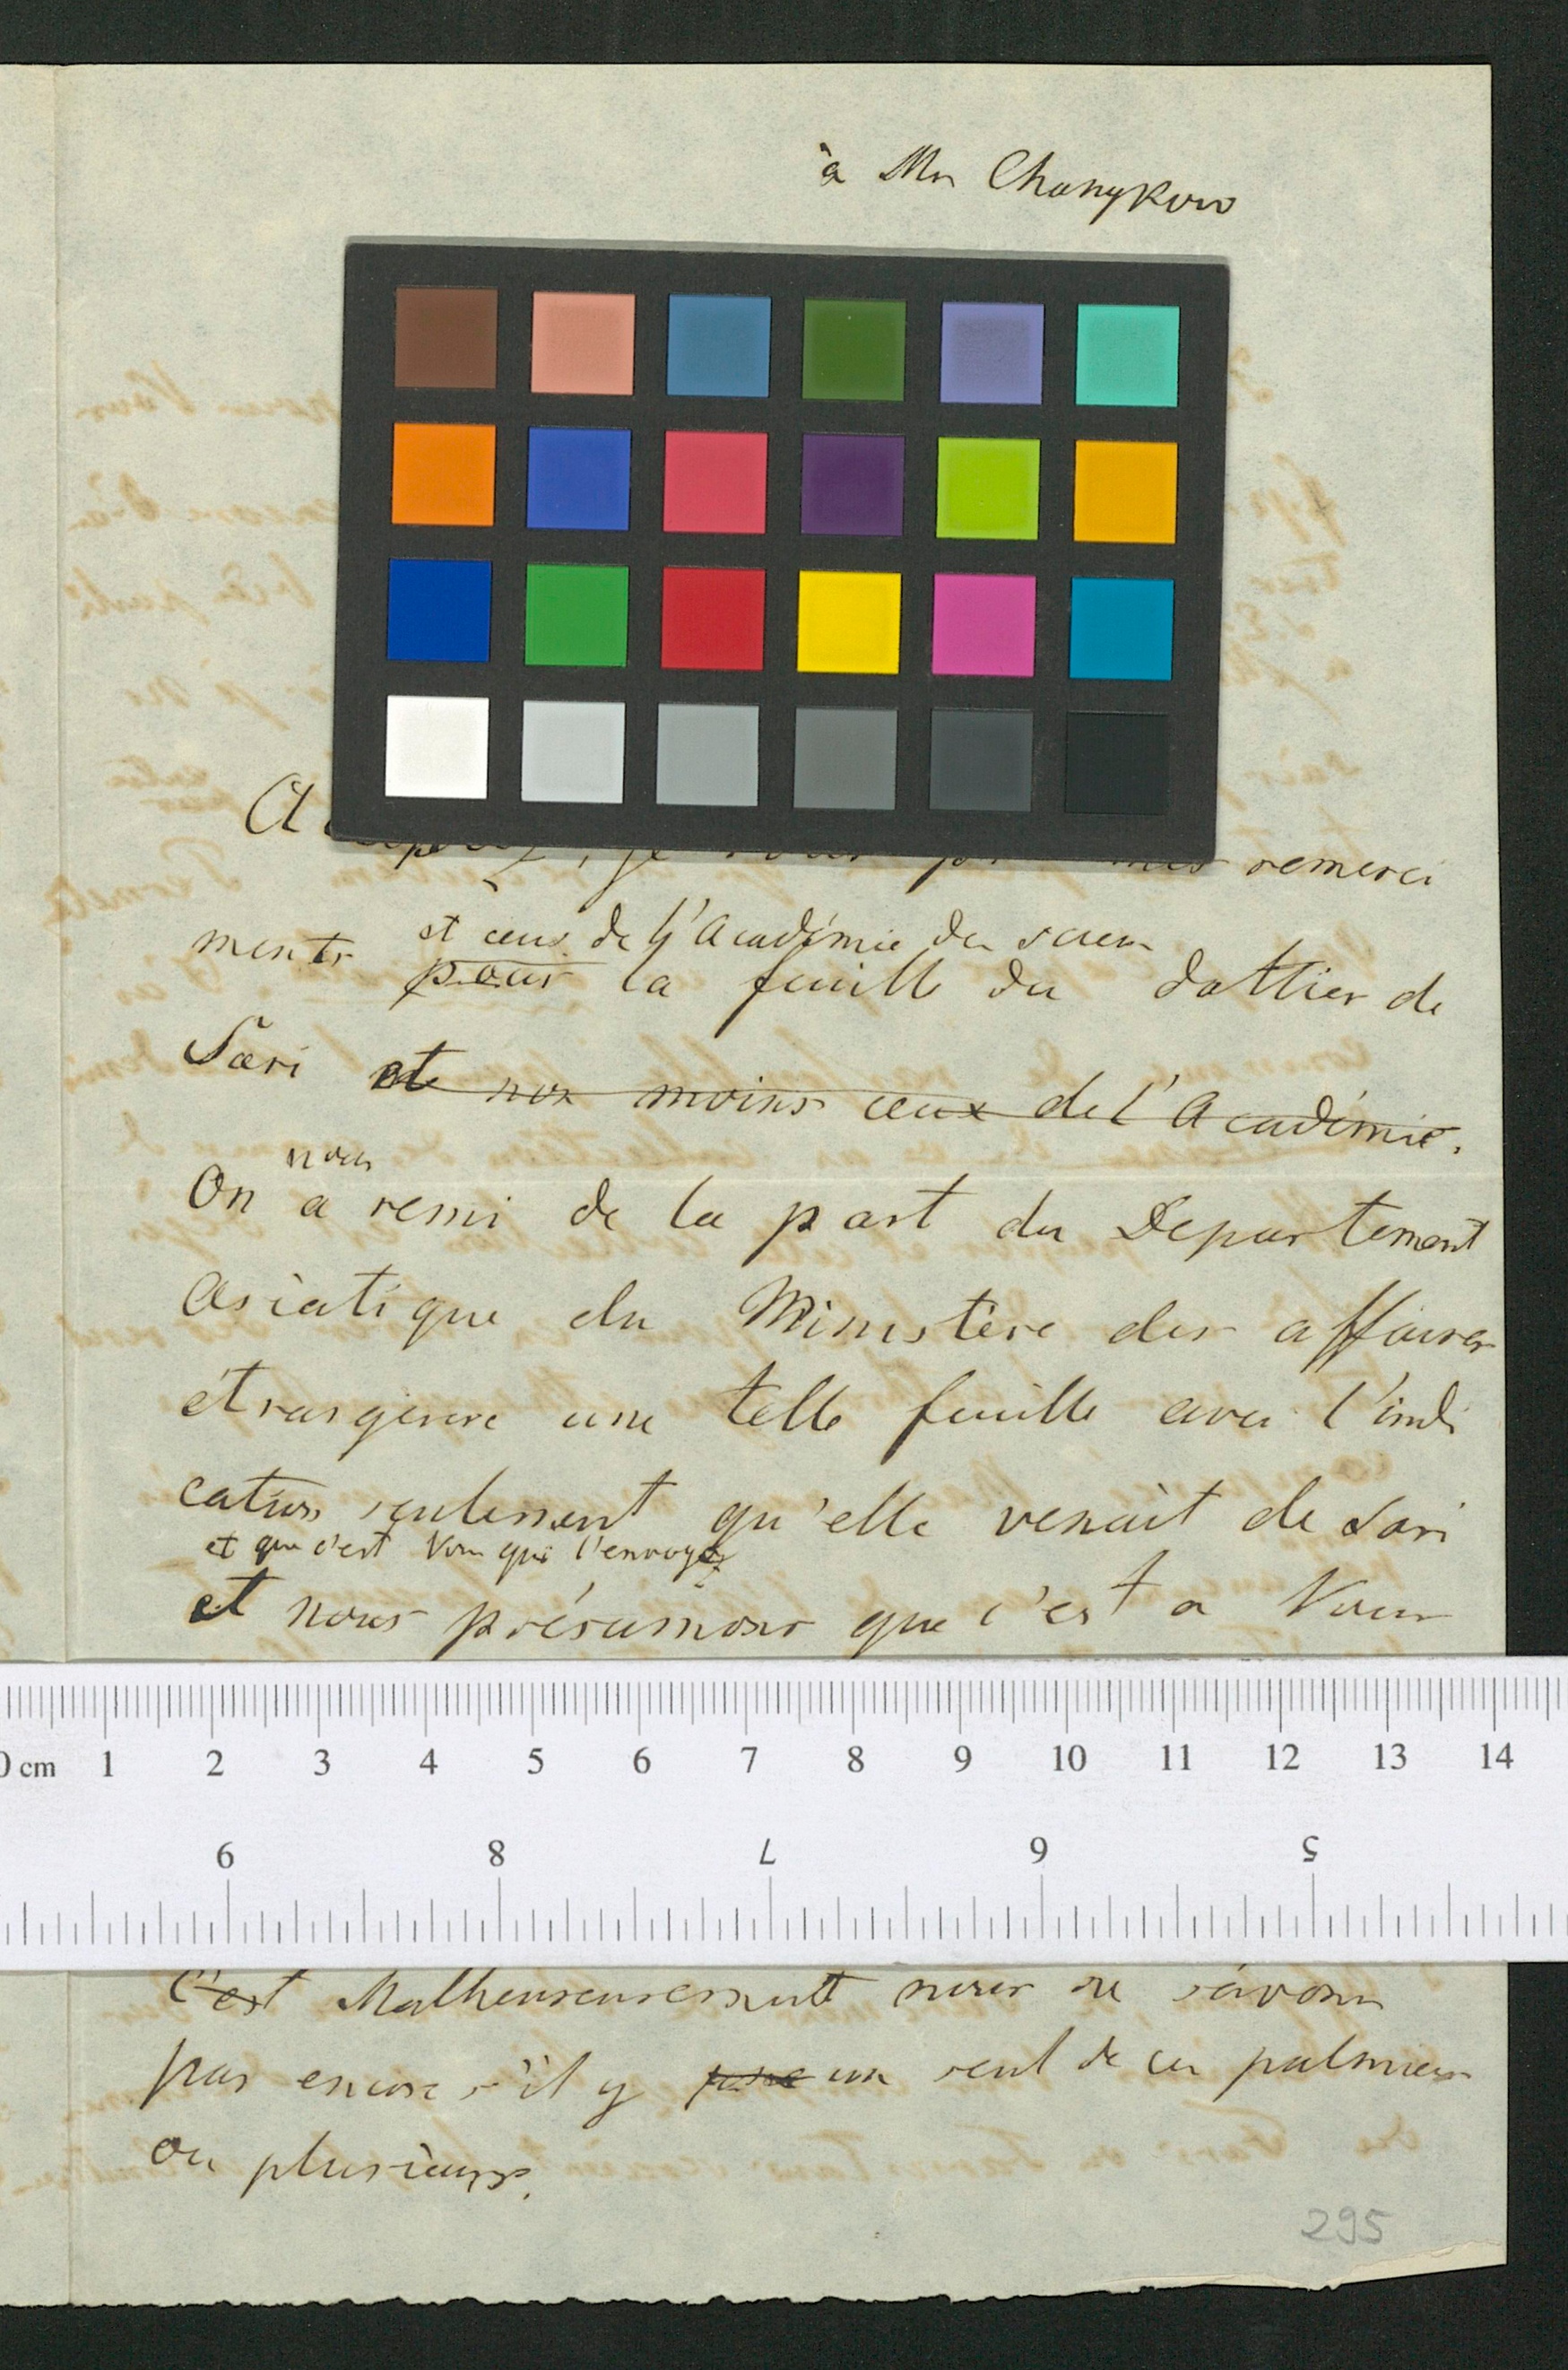 à Mr Chanykow
remerci
ments et ceux de l'Academie des scien
pour la feuille du dattier de
Sari et non moins ceux de l'Academie.
nous
On a remi de la part du Departement
Asiatique du Ministère des affaires
étrangeres une telle feuille avec l'indi
cation seulement qu'elle venait de Sari
et que c'est Vous qui l'envoyez
et nous présumons que c'est a Vous
0 cm 1 2 3 4 5 6 7 8 9 10 11 12 13 14
9 8 7 6 5
C'est Malheureusement nous ne savons
pas encore s'il y un seul de ces palmiers
ou plusieurs.
295